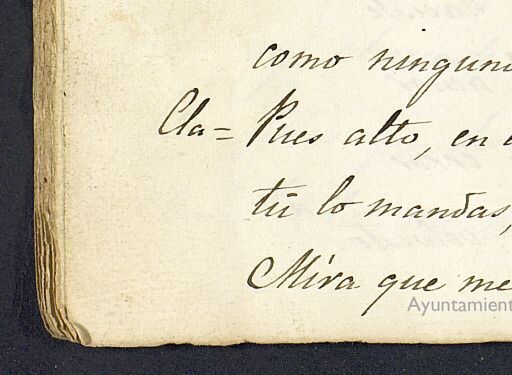 como ningun
Cla= Pues alto, en
tú lo mandas,
Mira que me
Ayuntamient